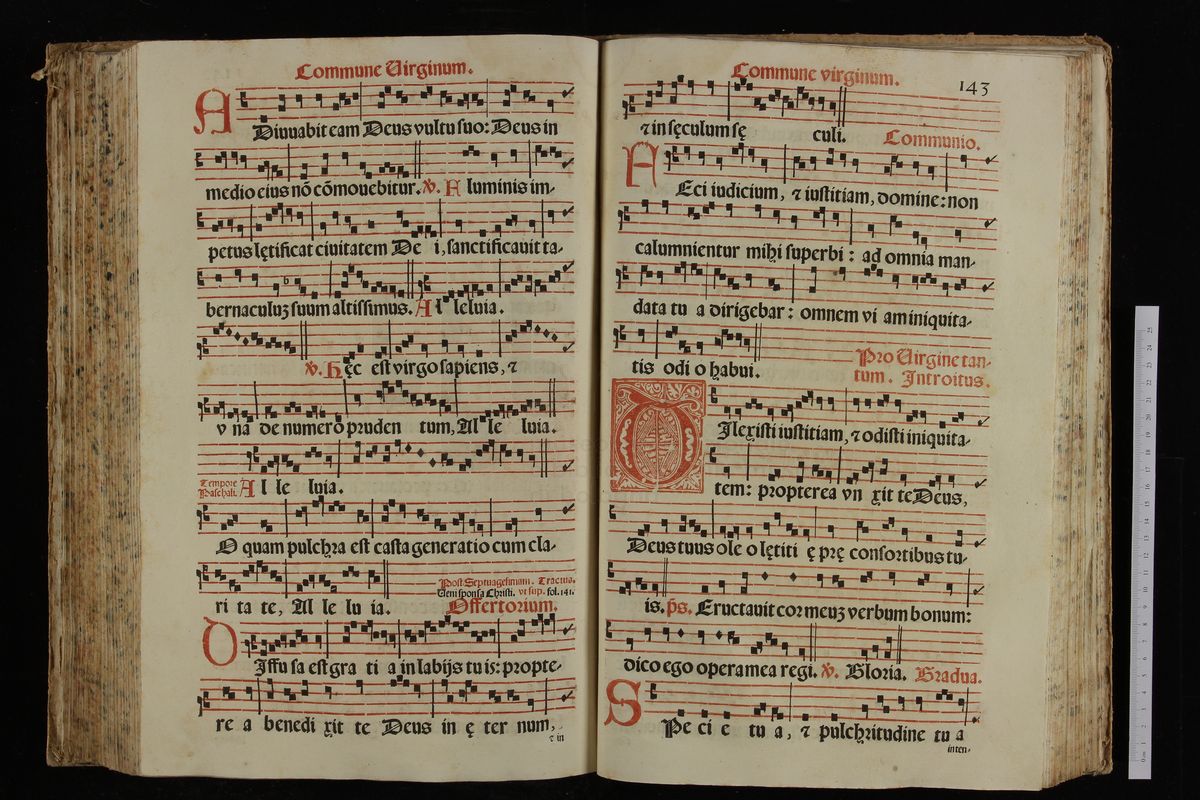 Commune Uirginum.
ADiuuabit eam Deus vultu suo: Deus in
medio eius nō cōmouebitur. ℣. Fluminis im-
petus lętificat ciuitatem De i, sanctificauit ta-
bernaculuꝫ suum altissimus. Al leluia.
℣. Hęc est virgo sapiens, ⁊
v na de numero pruden tum, Al le luia.
Tempore
Paschali.
Al le luia.
O quam pulchra est casta generatio cum cla-
Post Septuagesimam. Tractus.
Ueni sponsa Christi. vt sup. fol. 141.
ri ta te, Al le lu ia. Offertorium.
DIffu sa est gra ti a in labijs tu is: propte-
re a benedi xit te Deus in ę ter num,
⁊ in
Commune virginum.
143
⁊ in sęculum sę culi. Communio.
FEci iudicium, ⁊ iustitiam, domine: non
calumnientur mihi superbi: ad omnia man-
data tu a dirigebar: omnem vi am iniquita-
tis odi o habui.
Pro Uirgine tan-
tum. Introitus.
DIlexisti iustitiam, ⁊ odisti iniquita-
tem: propterea vn xit te Deus,
Deus tuus ole o lętiti ę prę consortibus tu-
is. p̄s. Eructauit cor meuꝫ verbum bonum:
dico ego opera mea regi. ℣. Gloria. Gradua.
SPe ci e tu a, ⁊ pulchritudine tu a
inten-